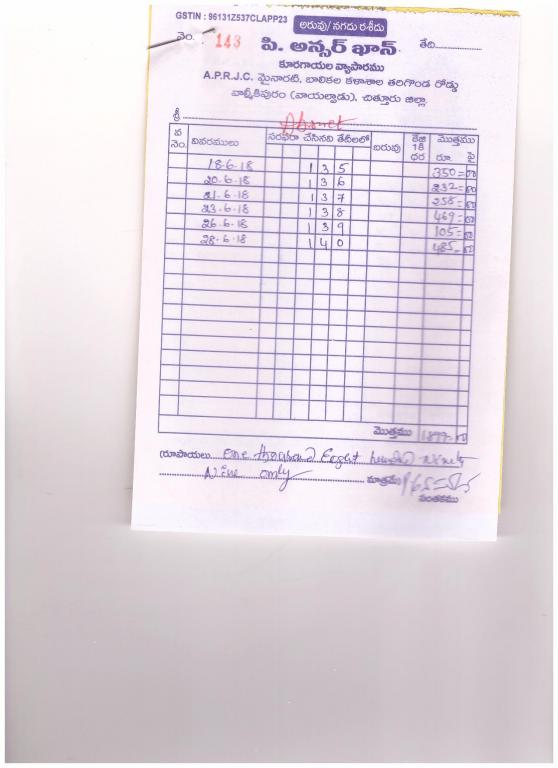 GSTIN : 96131Z537CLAPP23
అరువు/ నగదు రశీదు
నెం. : 143 తేది
పి. అన్సర్ ఖాన్.
కూరగాయల వ్యాపారము
A.P.R.J.C. మైనారటి, బాలికల కళాశాల తరిగొండ రోడ్డు
వాల్మీకిపురం (వాయల్పాడు), చిత్తూరు జిల్లా.
శ్రీ
వ నె వివరములు సరఫరా చేసినవి తేదీలలో బరువు కేజి 1కి ధర మొత్తము రూ. పై
18-6-18 135 350=00
20-6-18 136 232=00
21-6-18 137 258=00
23-6-18 138 469=00
26-6-18 139 105=00
28-6-18 140 485=00
మొత్తము 1899=00
(రూపాయలు One thousand Eight hundred Ninety
Nine only మాత్రము)
సంతకము